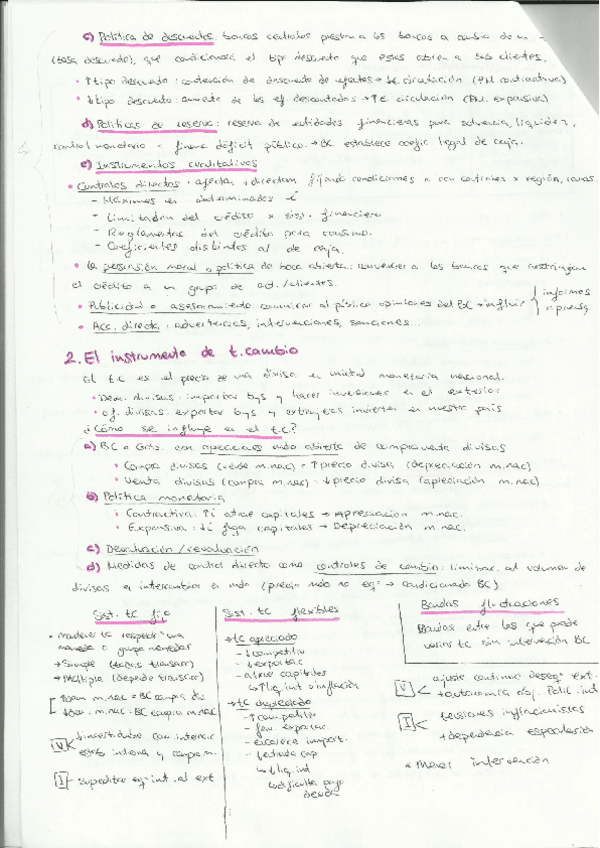 c) Política de descuentos: bancos centrales prestan a los bancos a cambio de un
(tasa descuento), que condicionará el tipo descuento que estos cobran a sus clientes.
• ↑tipo descuento: contención de descuento de efectos → ↓€ circulación (PM. contractiva)
• ↓tipo descuento: aumento de los ef. descontados → ↑€ circulación (PM. expansiva)
d) Políticas de reserva: reserva de entidades financieras para solvencia, liquidez,
control monetario o financ déficit público. → BC establece coefic legal de caja.
e) Instrumentos cualitativos
• Controles directos: afectan directam fijando condiciones o con cantid x región,
- Máximos en determinados i
- Limitación del crédito x sist. financiero
- Reglamentac del crédito para consumo.
- Coeficientes distintos al de caja.
• La persuasión moral o política de boca abierta: convencer a los bancos que restringan
el crédito a un grupo de act./clientes.
• Publicidad o asesoramiento comunicar al público opiniones del BC → influir } informes r. prensa
• Acc. directa: advertencias, intervenciones, sanciones...
2. El instrumento de t. cambio
El t.c es el precio de una divisa en unidad monetaria nacional.
• Dem. divisas: importar bys y hacer inversiones en el exterior
• Of. divisas: exportar bys y extranjeros invierten en nuestro país
¿Cómo se influye en el t.c?
a) BC o Gob. con operaciones mdo abierto de compraventa divisas
• Compra divisas (vende m.nac) = ↑precio divisa (depreciación m.nac)
• Venta divisas (compra m.nac): ↓precio divisa (apreciación m.nac)
b) Política monetaria
• Contractiva: ↑i atrae capitales → Apreciación m.nac.
• Expansiva: ↓i fuga capitales → Depreciación m.nac.
c) Devaluación/revaluación
d) Medidas de control directo como controles de cambio: liminac. al volumen de
divisas a intercambiar en mdo (precio mdo no eqº → condicionado BC)
Sist. tc fijo
• Mantener tc respecto una
moneda o grupo monedas
→ Simple (todas transacc)
→ Múltiple (depende transacc)
↑dem m.nac = BC compra div
↓dem. m.nac: BC compra m.nac
V ↓incertidumbre com. internac
I supeditar eqº int. al ext
Sist. tc flexibles
→ tc apreciado
- ↓competitiv
- ↓exportac
- atrae capitales
↳ ↑liq. int e inflación
→ tc depreciado
- ↑competitiv
- fav. exportac
- encarece import.
↳ ↓liq. int
↳ dificulta pago
deuda
Bandas fluctuaciones
Bandas entre las que puede
variar tc sin intervención BC
V ajuste continuo deseqº ext.
+ autonomía obj. Polít. int
I tensiones inflacionistas
+ dependencia especulación
* Menor intervención